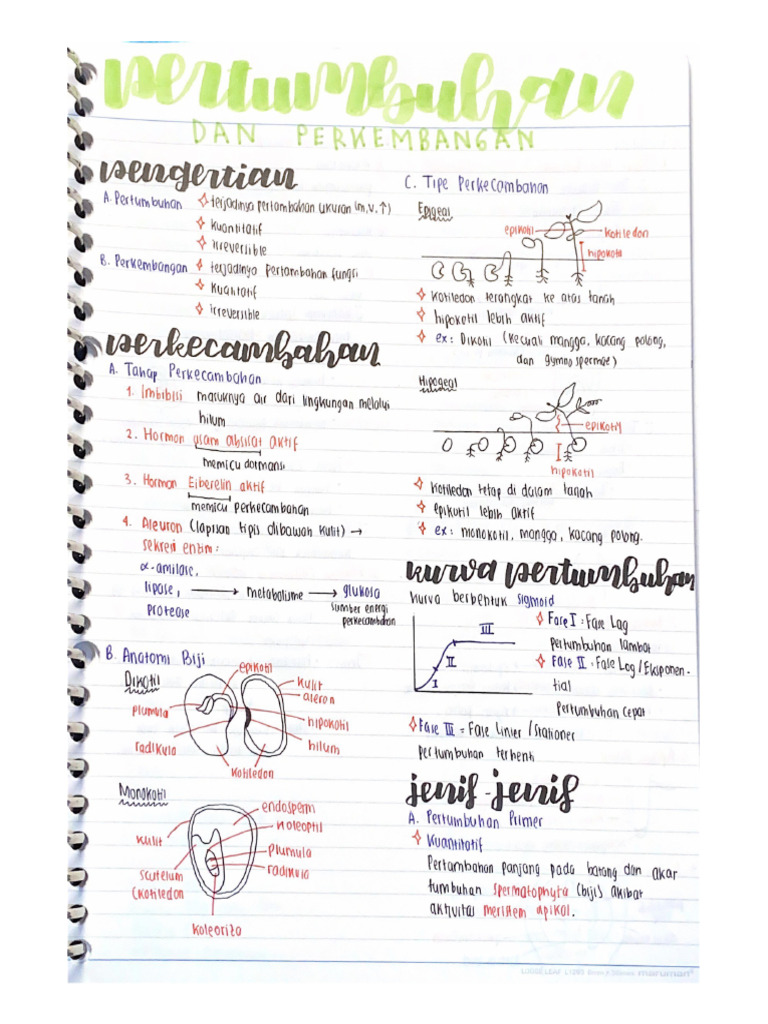 pertumbuhan
DAN PERKEMBANGAN
pengertian
A. Pertumbuhan
terjadinya pertambahan ukuran (m, v. ↑)
kuantitatif
irreversible
B. Perkembangan
terjadinya pertambahan fungsi
kualitatif
irreversible
perkecambahan
A. Tahap Perkecambahan
1. Imbibisi masuknya air dari lingkungan melalui
hilum
2. Hormon asam absisat aktif
memicu dormansi
3. Hormon Giberelin aktif
memicu perkecambahan
4. Aleuron (lapisan tipis dibawah kulit) →
sekresi enzim:
α-amilase,
lipase, → metabolisme → glukosa
protease
sumber energi
perkecambahan
B. Anatomi Biji
Dikotil
epikotil
kulit
aleron
plumula
hipokotil
radikula
hilum
kotiledon
Monokotil
endosperm
koleoptil
kulit
plumula
radikula
scutelum
(kotiledon
koleoriza
C. Tipe Perkecambahan
Epigeal
epikotil
kotiledon
hipokotil
kotiledon terangkat ke atas tanah
hipokotil lebih aktif
ex: Dikotil (kecuali mangga, kacang polong,
dan gymnospermae)
Hipogeal
epikotil
hipokotil
kotiledon tetap di dalam tanah
epikotil lebih aktif
ex: monokotil, mangga, kacang polong.
kurva pertumbuhan
kurva berbentuk sigmoid
III
II
I
Fase I : Fase Lag
Pertumbuhan lambat
Fase II : Fase Log / Eksponen-
tial
Pertumbuhan cepat
Fase III = Fase Linier / Stationer
Pertumbuhan terhenti
jenis-jenis
A. Pertumbuhan Primer
Kuantitatif
Pertambahan panjang pada batang dan akar
tumbuhan spermatophyta (biji) akibat
aktivitas meristem apikal.
LOOSE LEAF L1295 6mm X 36lines maruman